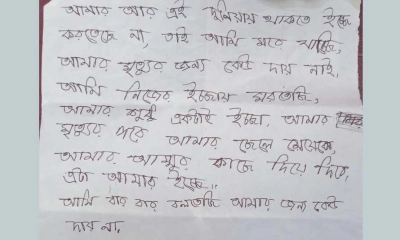 আমার আর এই দুনিয়ায় থাকতে ইচ্ছে
করতেছে না, তাই আমি মরে যাচ্ছি,
আমার মৃত্যুর জন্য কেউ দায় নাই.
আমি নিজের ইচ্ছায় মরতেছি,
আমার শুধু একটাই ইচ্ছা. আমার
মৃত্যুর পরে আমার ছেলে মেয়েকে,
আমার আম্মুর কাছে দিয়ে দিবে,
এটা আমার ইচ্ছে..
আমি বার বার বলতেছি আমার জন্য কেউ
দায় না.